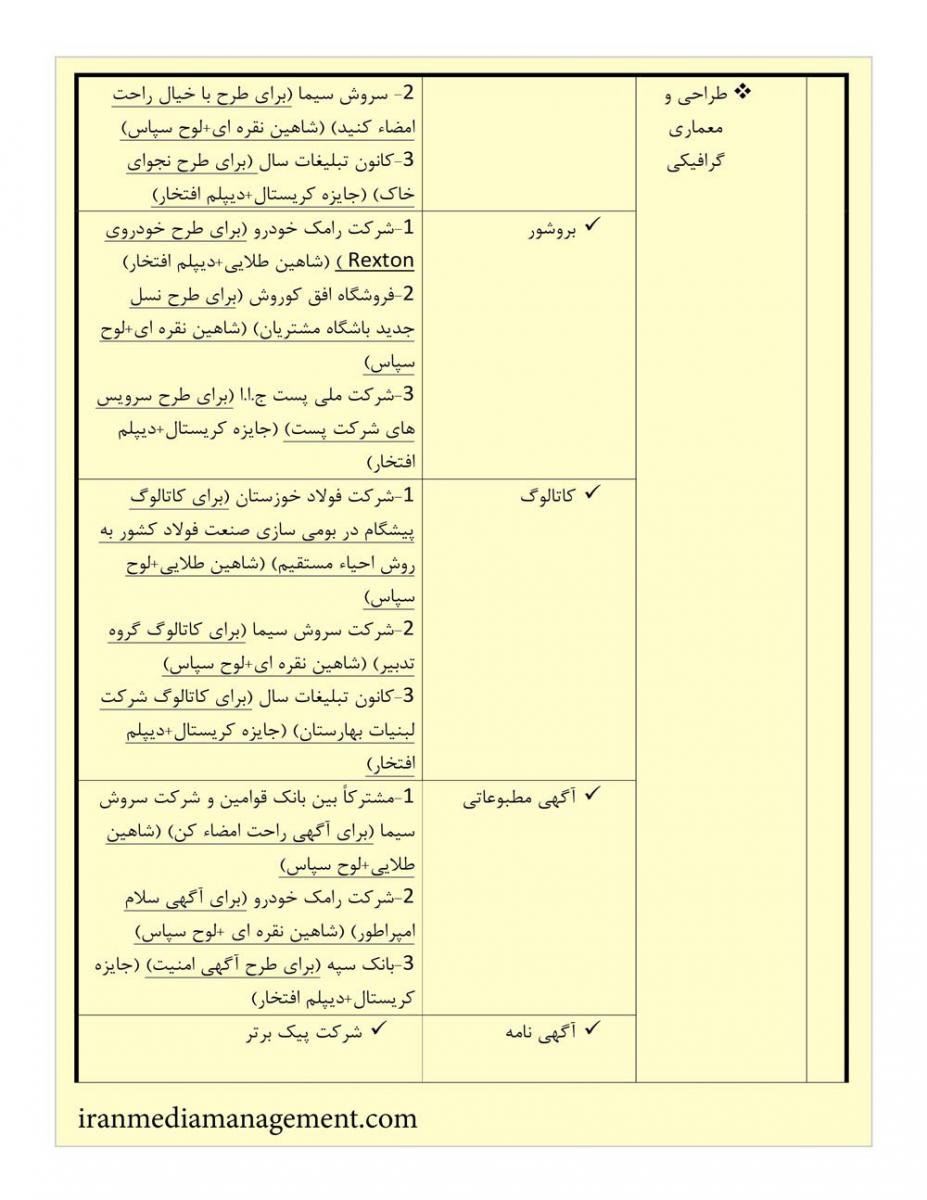 ❖ طراحی و
معماری
گرافیکی
2- سروش سیما (برای طرح با خیال راحت
امضاء کنید) (شاهین نقره ای+لوح سپاس)
3-کانون تبلیغات سال (برای طرح نجوای
خاک) (جایزه کریستال+دیپلم افتخار)
✓ بروشور
1-شرکت رامک خودرو (برای طرح خودروی
Rexton ) (شاهین طلایی+دیپلم افتخار)
2-فروشگاه افق کوروش (برای طرح نسل
جدید باشگاه مشتریان) (شاهین نقره ای+لوح
سپاس)
3-شرکت ملی پست ج.ا.ا (برای طرح سرویس
های شرکت پست) (جایزه کریستال+دیپلم
افتخار)
✓ کاتالوگ
1-شرکت فولاد خوزستان (برای کاتالوگ
پیشگام در بومی سازی صنعت فولاد کشور به
روش احیاء مستقیم) (شاهین طلایی+لوح
سپاس)
2-شرکت سروش سیما (برای کاتالوگ گروه
تدبیر) (شاهین نقره ای+لوح سپاس)
3-کانون تبلیغات سال (برای کاتالوگ شرکت
لبنیات بهارستان) (جایزه کریستال+دیپلم
افتخار)
✓ آگهی مطبوعاتی
1-مشترکاً بین بانک قوامین و شرکت سروش
سیما (برای آگهی راحت امضاء کن) (شاهین
طلایی+لوح سپاس)
2-شرکت رامک خودرو (برای آگهی سلام
امپراطور) (شاهین نقره ای +لوح سپاس)
3-بانک سپه (برای طرح آگهی امنیت) (جایزه
کریستال+دیپلم افتخار)
✓ آگهی نامه
✓ شرکت پیک برتر
iranmediamanagement.com